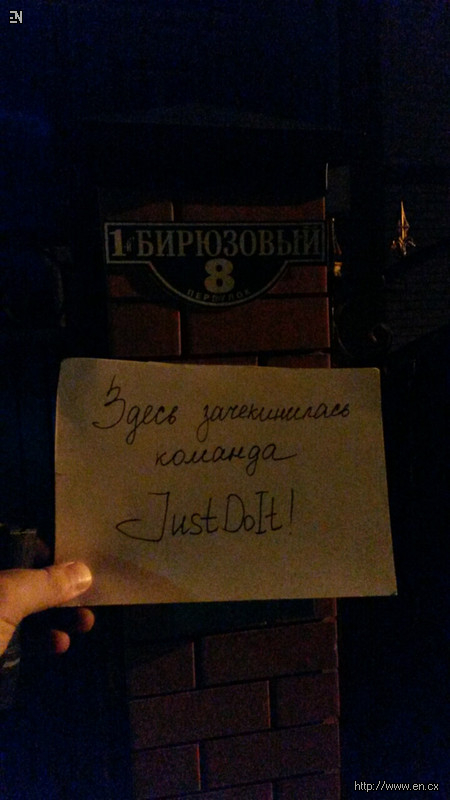 EN
1-й БИРЮЗОВЫЙ
8
ПЕРЕУЛОК
Здесь зачекинилась
команда
JustDoIt!
http://www.en.cx